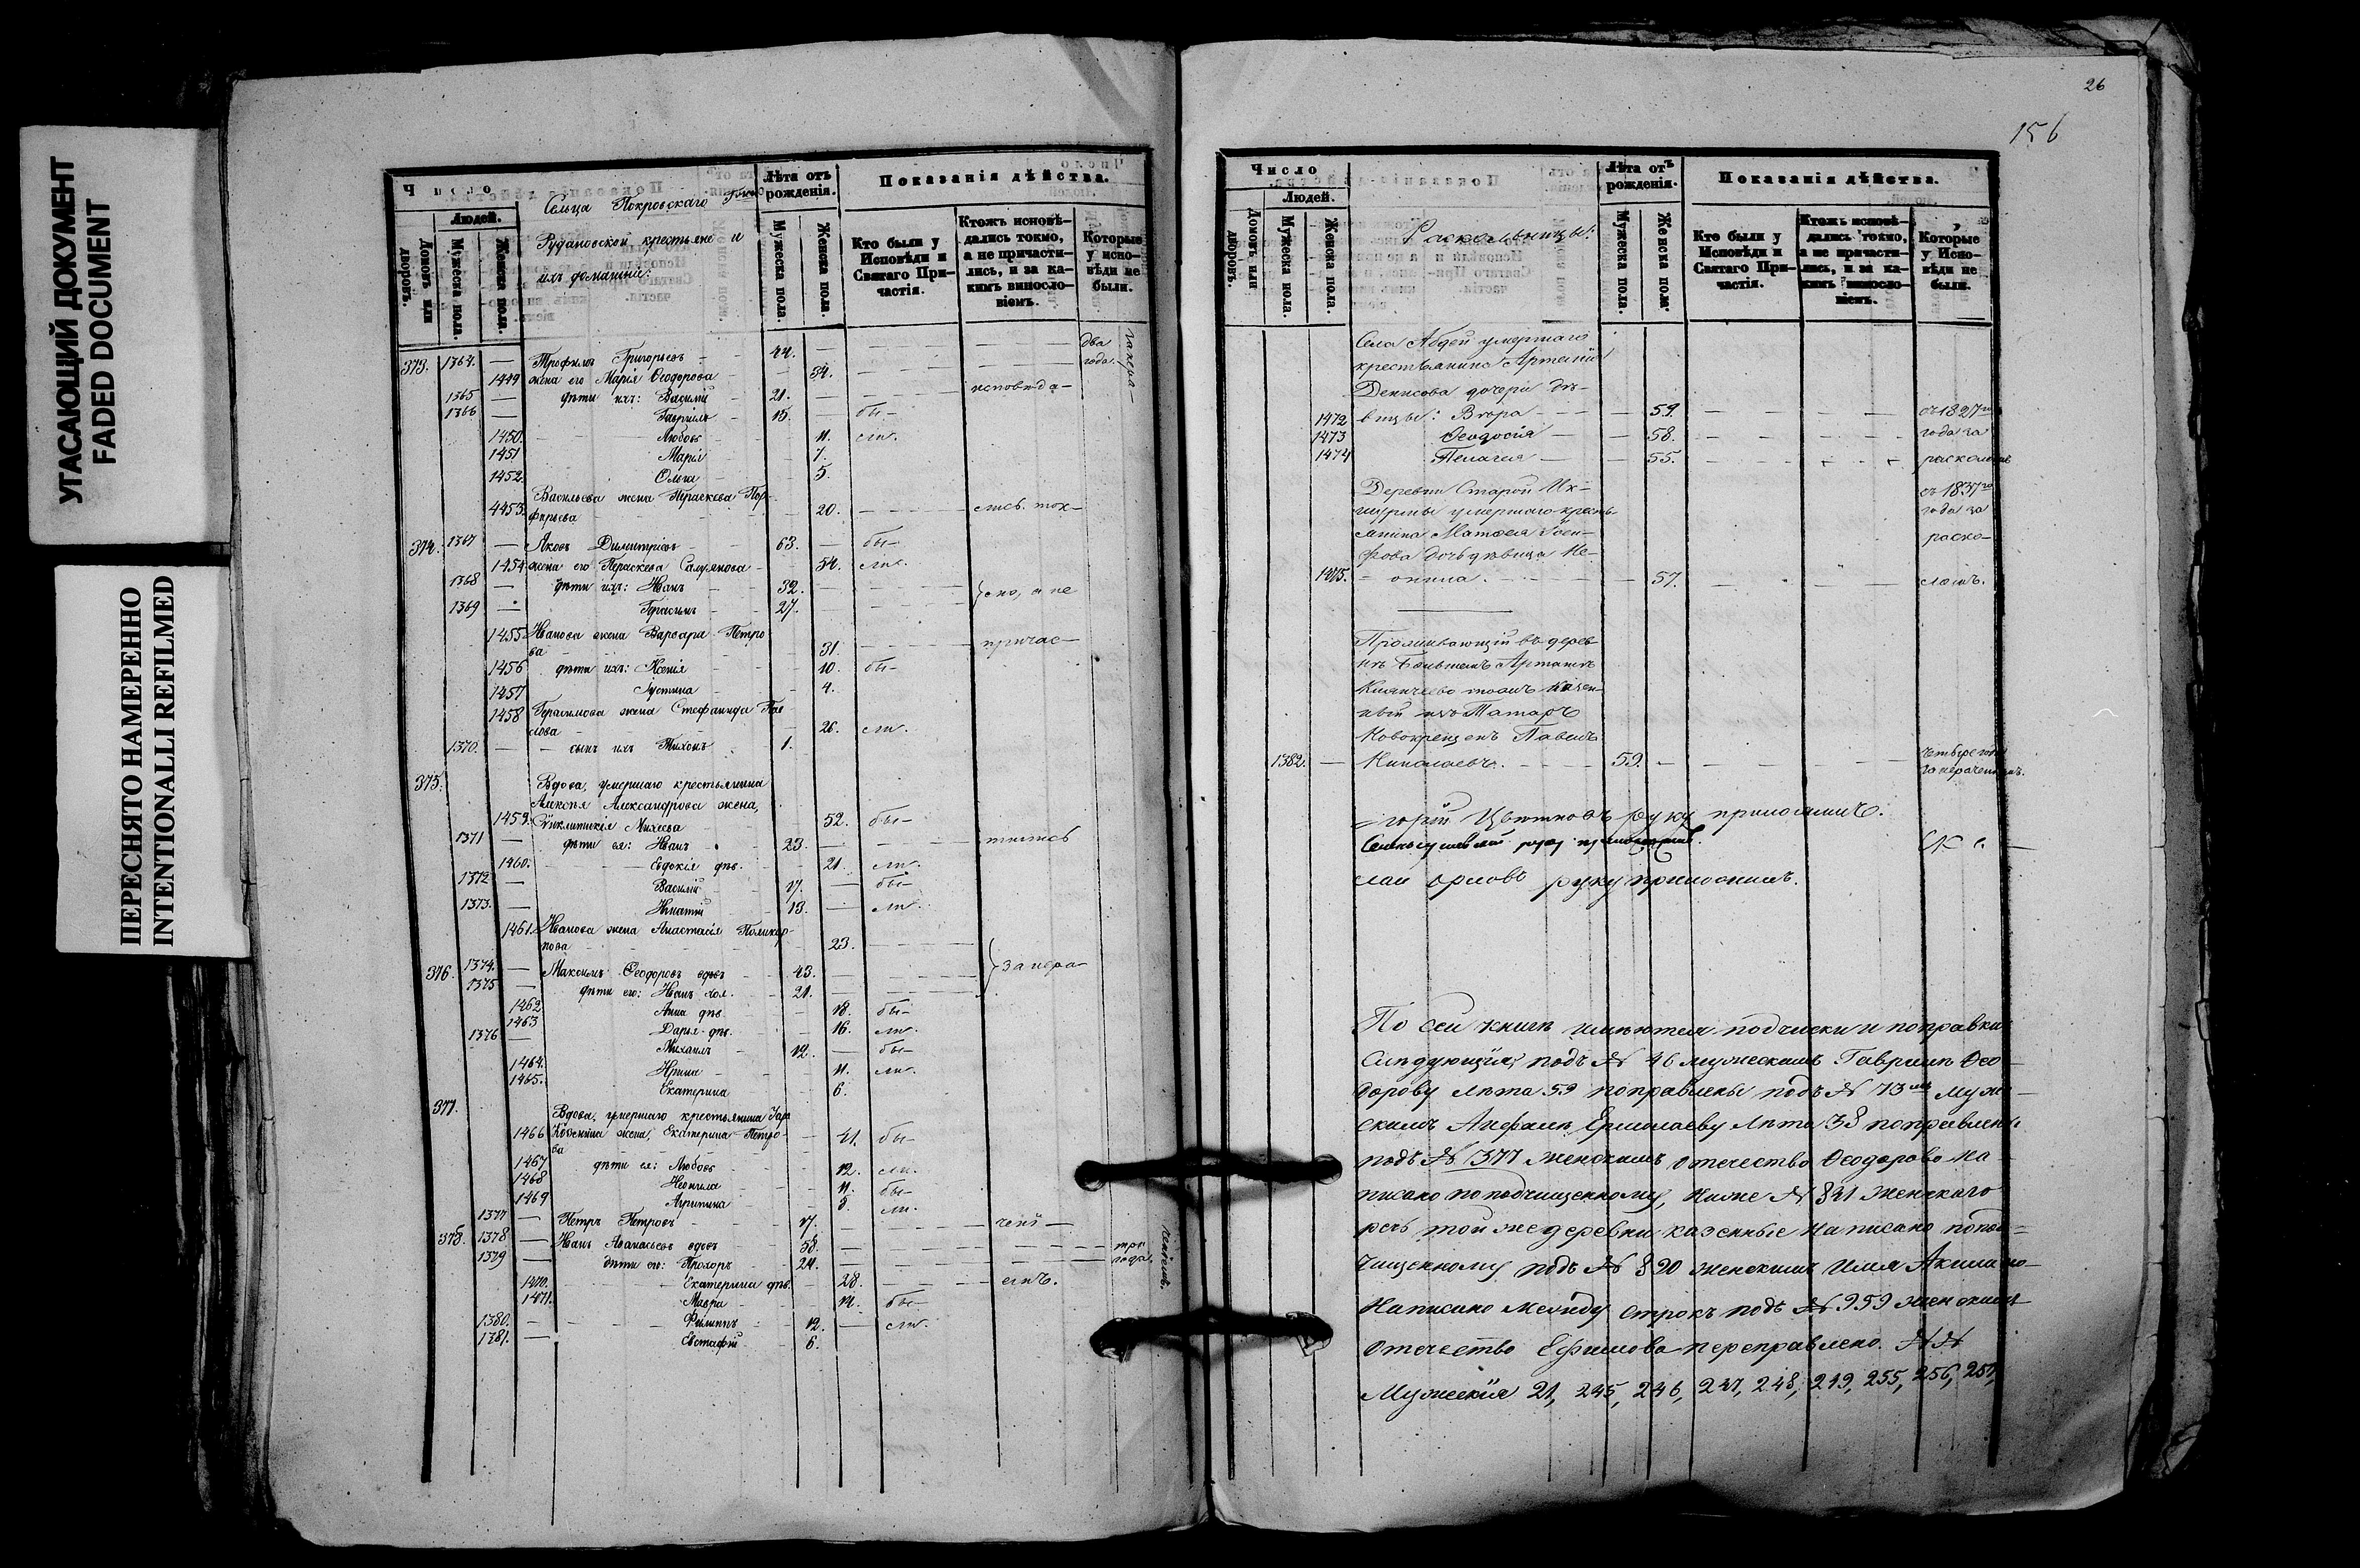 УГАСАЮЩИЙ ДОКУМЕНТ
FADED DOCUMENT
ПЕРЕСНЯТО НАМЕРЕННО
INTENTIONALLI REFILMED
Число
Людей.
Домовъ или дворовъ.
Мужеска пола.
Женска пола.
Сельца Покровскаго
Рудановской крестьяне и
ихъ домашніе:
Лѣта отъ рожденія.
Мужеска пола.
Женска пола.
Показанія дѣйства.
Кто были у Исповѣди и Святаго При-частія.
Ктожъ исповѣ-дались токмо, а не причасти-лись, и за ка-кимъ винословіемъ.
Которые у испо-вѣди не были.
373. 1364. — Трофимъ Григорьевъ 44. два
1449 жена его Марія Ѳеодорова 34. года
1365 — дѣти ихъ: Василій 21. исповѣда-
1366 — Гавріилъ 15. бы-
1450. Любовь 11. ли.
1451 Марія 7.
1452. Ольга 5.
Васильева жена Параскева Пор-
4453. фирьева 20. лись. ток-
374. 1367 — Яковъ Димитріевъ 63. бы-
1454. жена его Параскева 54. ли.
1368 — дѣти ихъ: Иванъ 32. мо, а не
1369 — Герасимъ 27.
1455 Иванова жена Варвара Петро-
ва 31. причас-
1456 дѣти ихъ: Ксенія 10. бы-
1457 Іустина 4.
1458 Герасимова жена Стефанида Пав
лова 26. ли.
1370. — сынъ ихъ Тихонъ 1.
375. Вдова, умершаго крестьянина
Алексѣя Александрова жена,
1459. Сѵнклитикія Михеева 52. бы-
1371 — дѣти ея: Иванъ 23. тились
1460. Евдокія дѣв. 21. ли.
1372 — Василій 17. бы-
1373. — Игнатій 13. ли.
1461. Иванова жена Анастасія Поликар-
пова 23.
376. 1374. — Максимъ Ѳеодоровъ вдовъ 43. за нера-
1375 — дѣти его: Иванъ хол. 21.
1462 Анна дѣв. 18. бы-
1463 Дарья дѣв. 16. ли.
1376 — Михаилъ 12. бы-
1464. Ирина 11. ли.
1465. Екатерина 6.
377. Вдова, умершаго крестьянина
1466 жена, Екатерина Петро-
ва 41. бы-
1467 дѣти ея: Любовь 12. ли.
1468 Неонила 11. бы-
1469 Агриппина 8. ли.
1377 — Петръ Петровъ 17.
378. 1378 — Иванъ Аѳанасьевъ вдовъ 58. три
1379 — дѣти его: Прохоръ 24. года.
1470. Екатерина дѣв. 28. емъ.
1471. Мавра 14. бы-
1380. Филиппъ 12. ли.
1381. — Евстафій 6.
26
156
Число
Людей.
Домовъ или дворовъ.
Мужеска пола.
Женска пола.
Раскольницы:
Лѣта отъ рожденія.
Мужеска пола.
Женска пола.
Показанія дѣйства.
Кто были у Исповѣди и Святаго При-частія.
Ктожъ исповѣ-дались токмо, а не причасти-лись, и за ка-кимъ винословіемъ.
Которые у Испо-вѣди не были.
Села Абдей умершаго
крестьянина Артемія
Денисова дочери дѣ-
1472 вицы: Вѣра 59. съ 1827го
1473 Ѳеодосія 58. года за
1474 Пелагея 55. расколомъ
Деревни Старой съ 1837го
умершаго кресть- года за
янина Матѳея раско-
дочь дѣвица Не-
1475. онила. 57. ломъ.
Проживающій въ дерев-
нѣ Большемъ
казен-
ный изъ Татаръ
Новокрещенъ Павелъ
1382. — Николаевъ. 59. четыре года
за нераченіемъ.
горій Цвѣтковъ руку приложилъ.
руку приложилъ.
лай Орловъ руку приложилъ.
По сей книгѣ имѣются подчистки и поправки
слѣдующія; подъ № 46 мужескимъ Гавріилѣ Ѳео-
дорову лѣта 59 поправлены подъ № 73мъ муже-
скимъ Ермолаеву лѣта 38 поправлены
подъ № 1377 женскимъ отечество Ѳеодорова на-
писано по подчищенному, ниже № 821 женскаго
рѣчь той же деревни казенные написано по под-
чищенному подъ № 890 женскимъ имя Акилина
написано между строкъ подъ № 959 женскимъ
отечество Ефимова переправлено. №№
Мужескія 21, 245, 246, 247, 248, 249, 255, 256, 257,